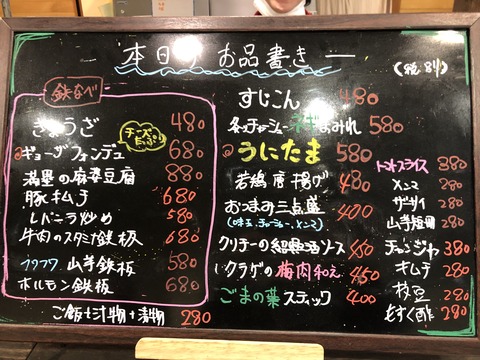 本日のお品書き
(税別)
鉄なべ
ぎょうざ 480
チーズたっぷり
ギョーザフォンデュ 680
満星の麻婆豆腐 880
豚キムチ 680
レバニラ炒め 580
牛肉のスタミナ鉄板 680
フワフワ山芋鉄板 580
ホルモン鉄板 680
ご飯+汁物+漬物 280
すじこん 480
名物チャーシューネギまみれ 580
うにたま 580
若鶏唐揚げ 480
おつまみ三点盛 400
(味玉、チャーシュー、メンマ)
クリチーの 450
クラゲの梅肉和え 450
ごまの葉スティック 400
トマトスライス 380
メンマ 280
ザーサイ 280
山芋短冊 280
チャンジャ 380
キムチ 280
枝豆 280
もずく酢 280